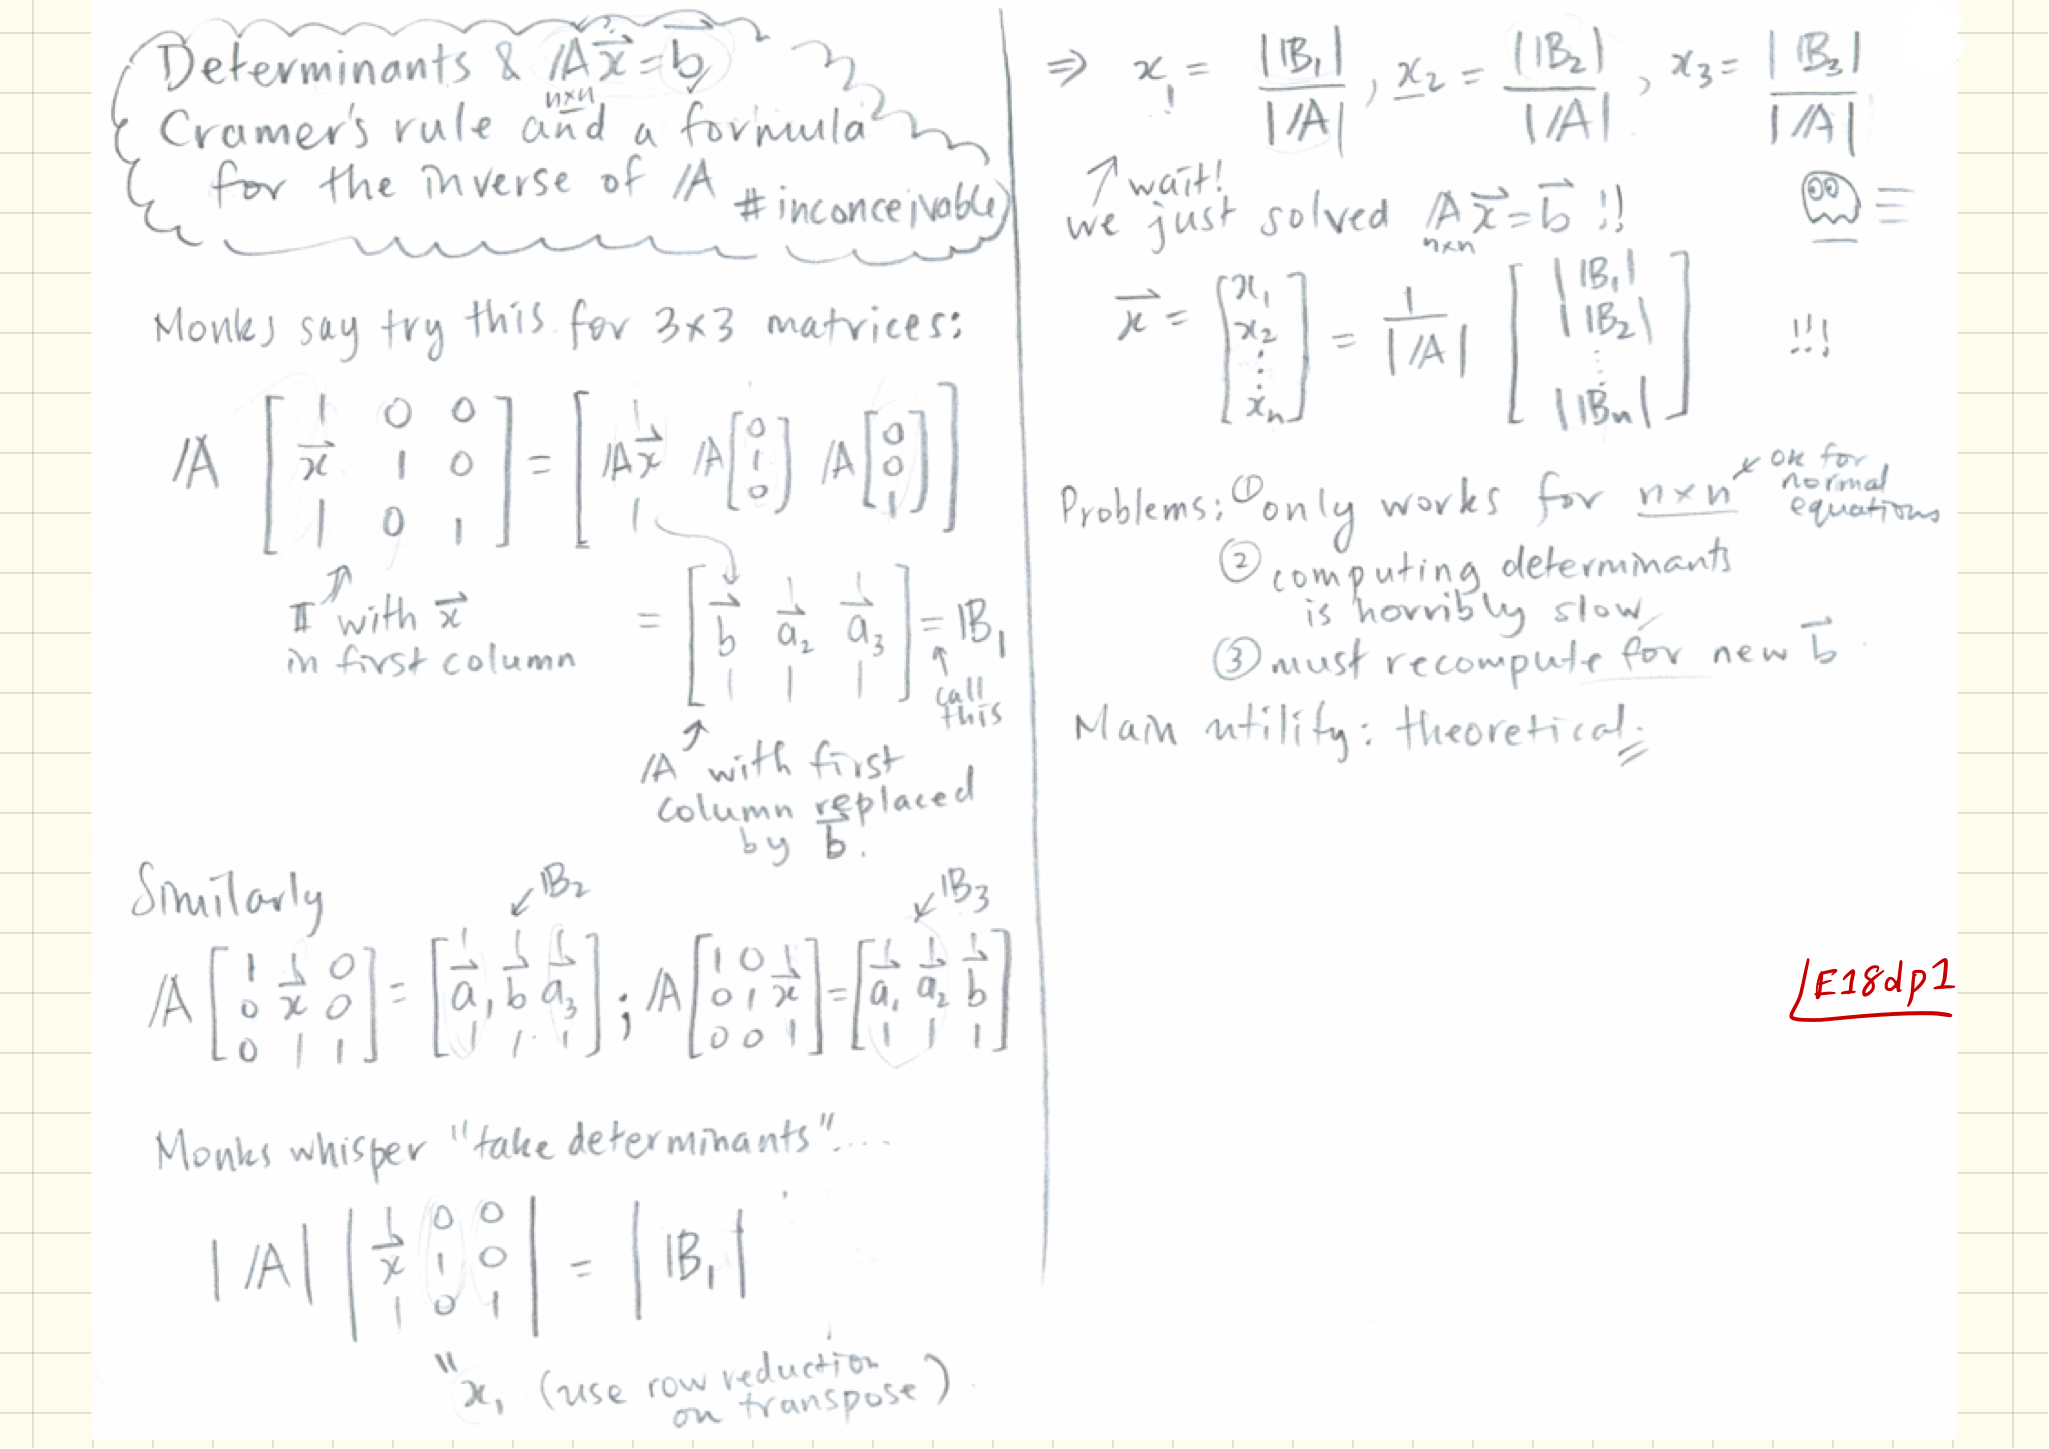 Determinants & A x⃗ = b⃗
n×n
Cramer's rule and a formula
for the inverse of A
#inconceivable
Monks say try this for 3×3 matrices:
A [ | 0 0 ; x⃗ 1 0 ; | 0 1 ] = [ | ; Ax⃗ A[0 1 0] A[0 0 1] ; | ]
I with x⃗
in first column
= [ | | | ; b⃗ a⃗₂ a⃗₃ ; | | | ] = B₁
call
this
A with first
column replaced
by b⃗.
Similarly
B₂
B₃
A [ 1 | 0 ; 0 x⃗ 0 ; 0 | 1 ] = [ | | | ; a⃗₁ b⃗ a⃗₃ ; | | | ] ; A [ 1 0 | ; 0 1 x⃗ ; 0 0 | ] = [ | | | ; a⃗₁ a⃗₂ b⃗ ; | | | ]
Monks whisper "take determinants"....
|A| | | 0 0 ; x⃗ 1 0 ; | 0 1 | = |B₁|
" x₁ (use row reduction
on transpose).
⇒ x₁ = |B₁|/|A| , x₂ = |B₂|/|A| , x₃ = |B₃|/|A|
!
wait!
we just solved A x⃗ = b⃗ !!
n×n
x⃗ = [ x₁ ; x₂ ; ⋮ ; xₙ ] = 1/|A| [ |B₁| ; |B₂| ; ⋮ ; |Bₙ| ] !!!
Problems: ① only works for n×n
ok for
normal
equations
② computing determinants
is horribly slow
③ must recompute for new b⃗
Main utility: theoretical.
E18dp1